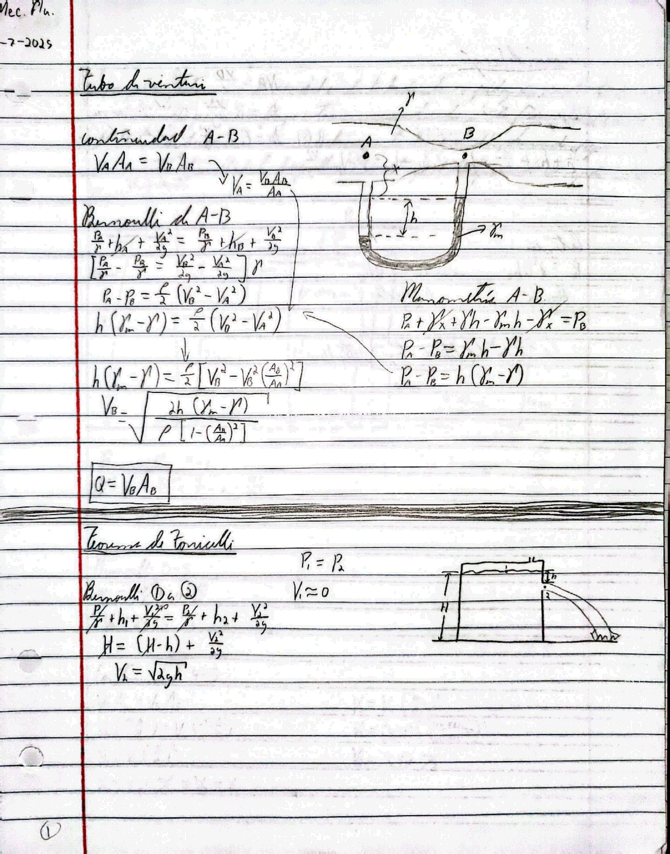 Mec. Flu.
-7-2025
Tubo de venturi
γ
A
B
x
h
γm
continuidad A-B
V_A A_A = V_B A_B
V_A = V_B A_B / A_A
Bernoulli de A-B
P_A/γ + h_A + V_A²/2g = P_B/γ + h_B + V_B²/2g
[P_A/γ - P_B/γ = V_B²/2g - V_A²/2g] γ
P_A - P_B = ρ/2 (V_B² - V_A²)
h(γm - γ) = ρ/2 (V_B² - V_A²)
h(γm - γ) = ρ/2 [V_B² - V_B² (A_B/A_A)²]
V_B = √(2h (γm - γ) / ρ [1 - (A_B/A_A)²])
Q = V_B A_B
Manometría A-B
P_A + γx + γh - γm h - γx = P_B
P_A - P_B = γm h - γh
P_A - P_B = h(γm - γ)
Teorema de Torricelli
P₁ = P₂
V₁ ≈ 0
Bernoulli ① a ②
P₁/γ + h₁ + V₁²/2g = P₂/γ + h₂ + V₂²/2g
H = (H-h) + V₂²/2g
V₂ = √2gh
1
h
2
H
①